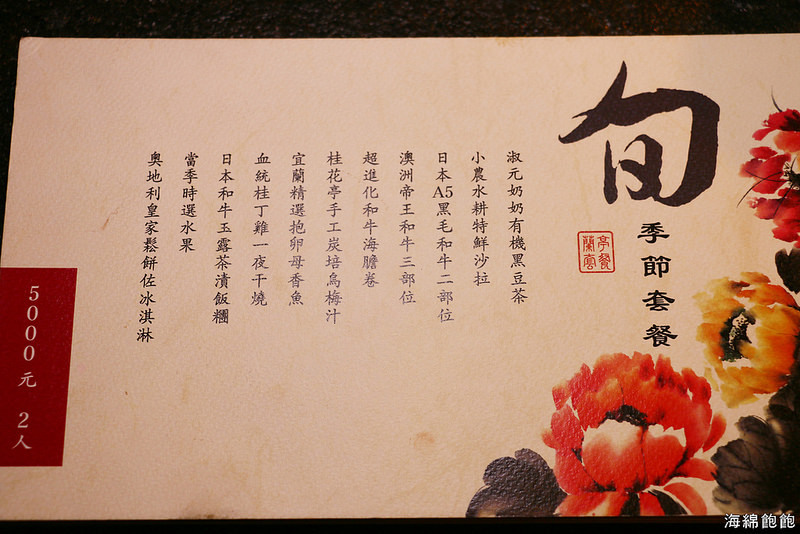 旬
季節套餐
淑元奶奶有機黑豆茶
小農水耕特鮮沙拉
日本A5黑毛和牛二部位
澳洲帝王和牛三部位
超進化和牛海膽卷
桂花亭手工炭培烏梅汁
宜蘭精選抱卵母香魚
血統桂丁雞一夜干燒
日本和牛玉露茶漬飯糰
當季時選水果
奧地利皇家鬆餅佐冰淇淋
5000元 2人
海綿飽飽